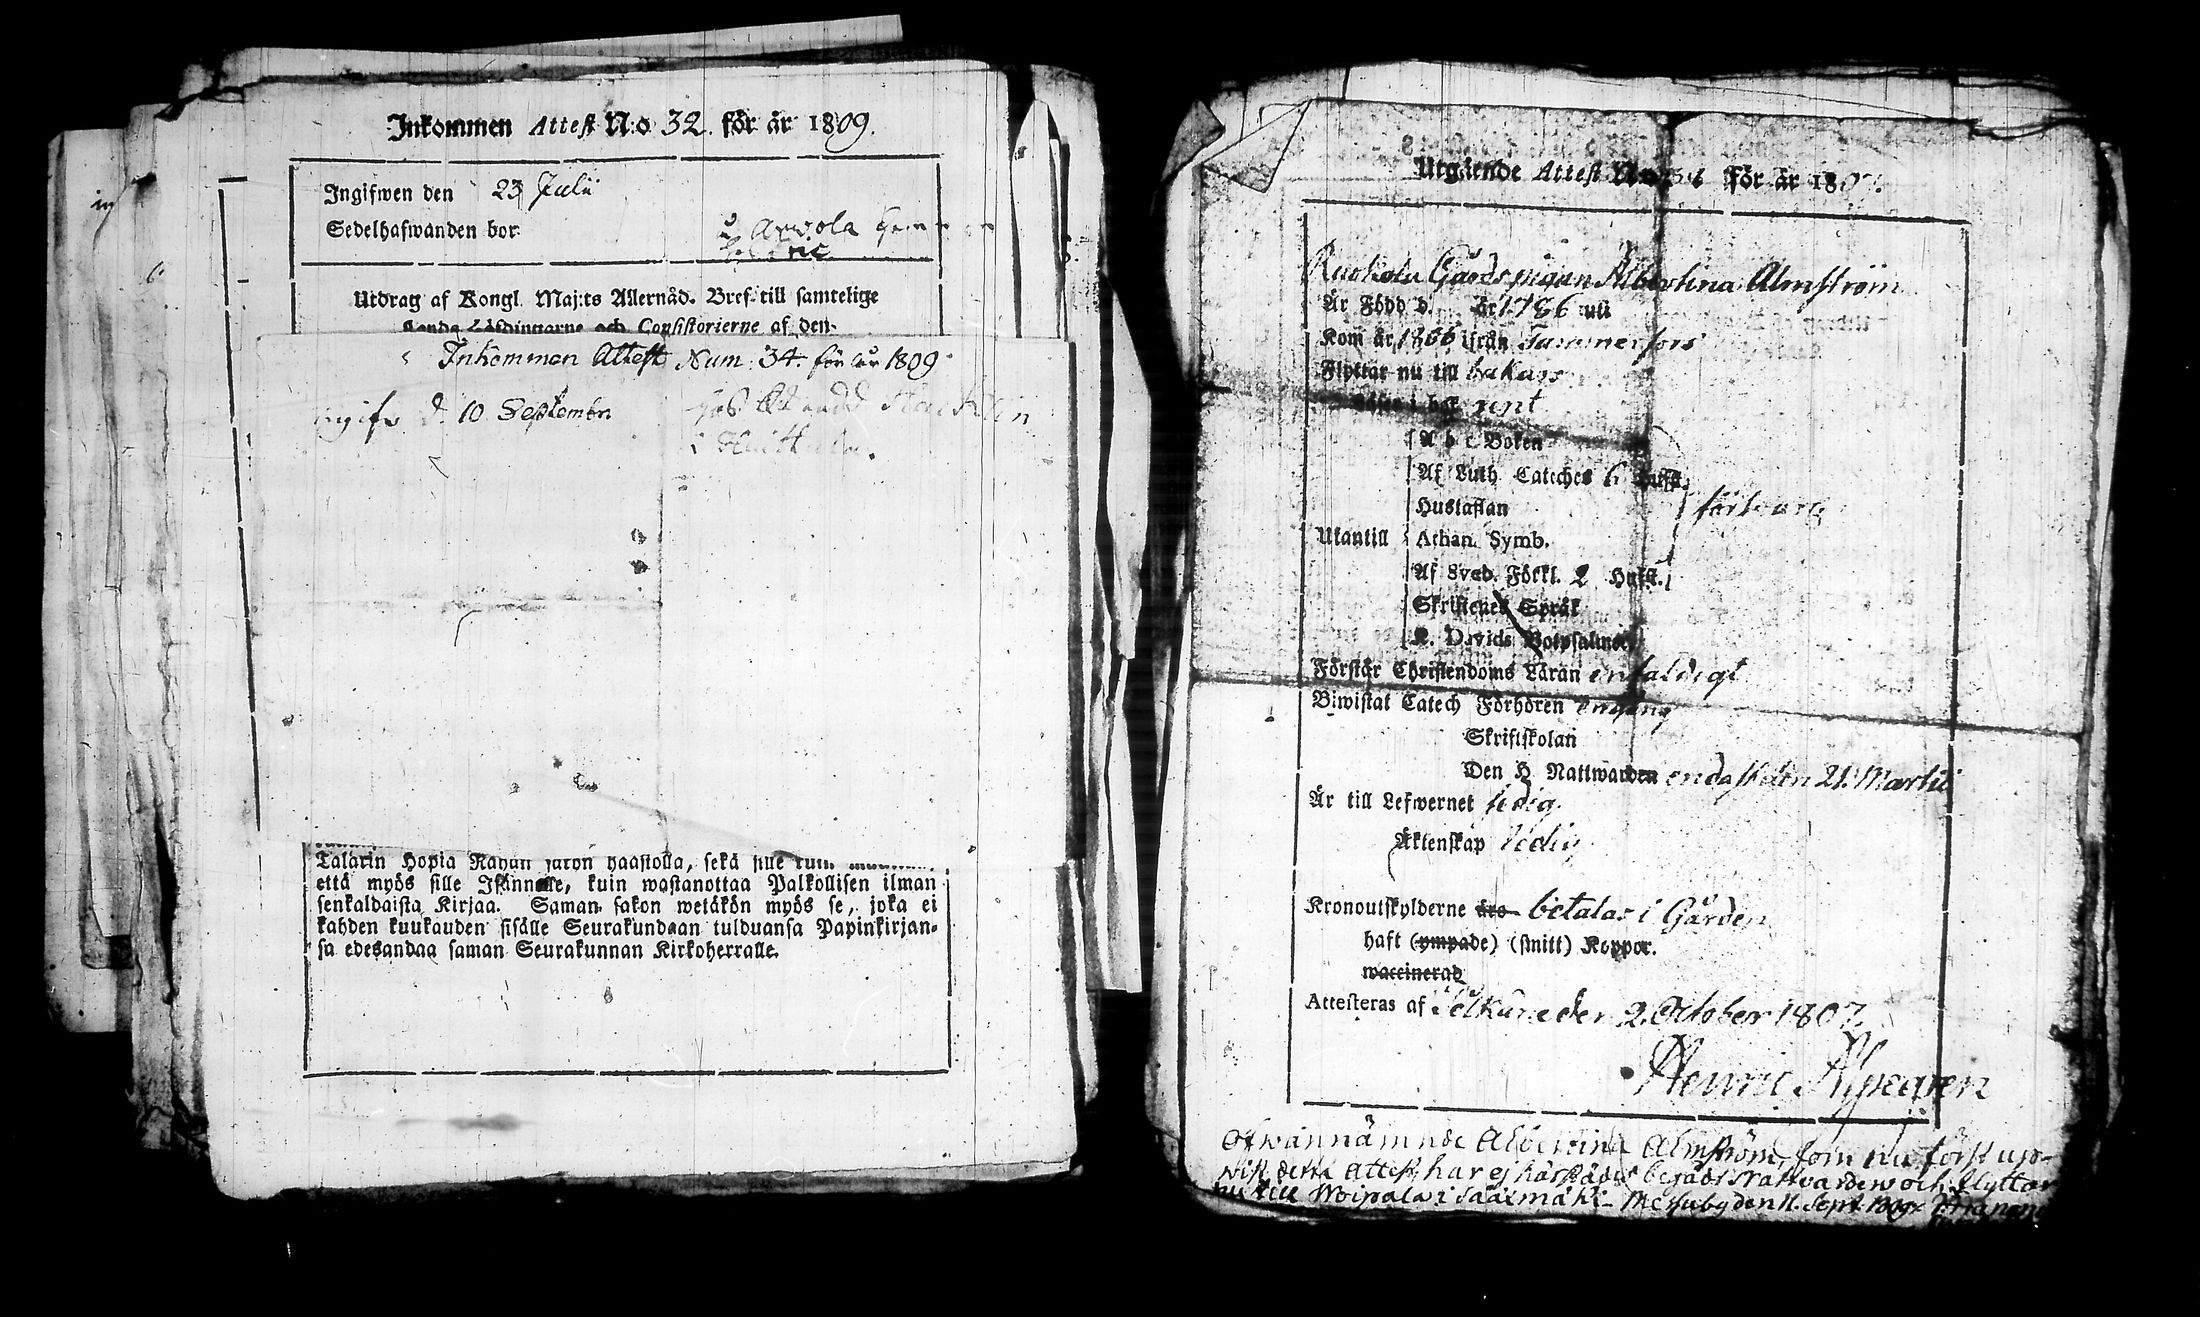 Inkommen Attest N:o 32. för år 1809.
Ingifwen den 23 Julii
Sedelhafwanden bor
Arvola
Utdrag af Kongl. Maj:ts Allernåd. Bref till samtelige
Landshöfdingarne och Consistorierne af den
Inkommen Attest Num. 34. för år 1809
ingifv d. 10 Septembr.
Talarin Hopia Rahan
että myös sille Isännelle, kuin wastanottaa Palkollisen ilman
senkaldaista Kirjaa. Saman sakon wetäkön myös se, joka ei
kahden kuukauden sisälle Seurakundaan tulduansa Papinkirjan-
sa edesandaa saman Seurakunnan Kirkoherralle.
Utgående Attest för år 180
Gårds pigan Albertina Almström
Är Född d. år 1786 uti
Kom år ifrån Tammerfors
Flyttar nu till
i bok rent
A b c Boken
Af Luth. Cateches 6 Hufst.
Hustaflan
Utantill Athan. Symb.
Af Sveb. Förkl. 2 Hufst.
Skriftenes Språk
K. Davids Botpsalmer
Förstår Christendoms Läran enfaldigt
Biwistat Catech Förhören en gång
Skriftskolan
Den H. Nattwarden endast den 21. Martii
Är till Lefwernet ledig
Äktenskap ledig
Kronoutskylderne äro betalas i Gården
haft (ympade) (smitt) Koppor.
waccinerad
Attesteras af den 2. October 1807.
Henric
Ofwannämnde Albertina Almström, som nu först up-
wist detta attest, har ej härstädes begådt Nattvarden och flyttar
nu till Woipala i Sääxmäki. Messuby den 11. Sept. 1809.